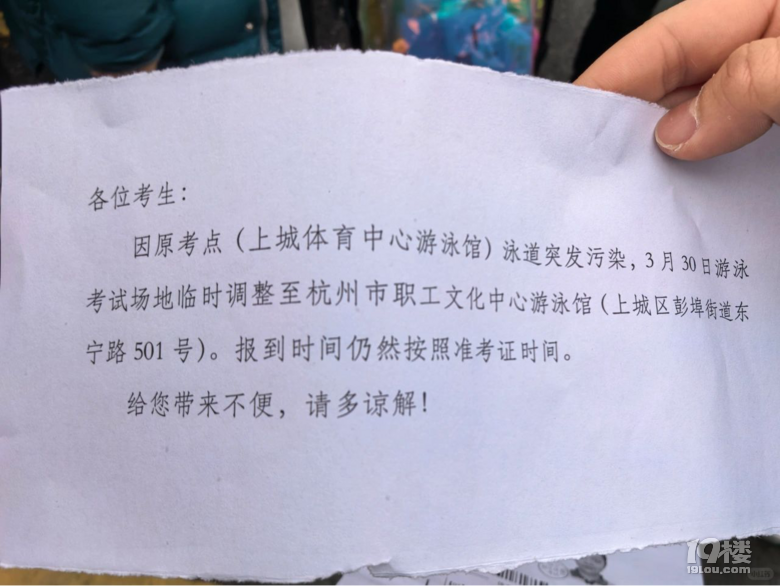 各位考生：
因原考点（上城体育中心游泳馆）泳道突发污染，3月30日游泳
考试场地临时调整至杭州市职工文化中心游泳馆（上城区彭埠街道东
宁路501号）。报到时间仍然按照准考证时间。
给您带来不便，请多谅解！
19楼
19lou.com